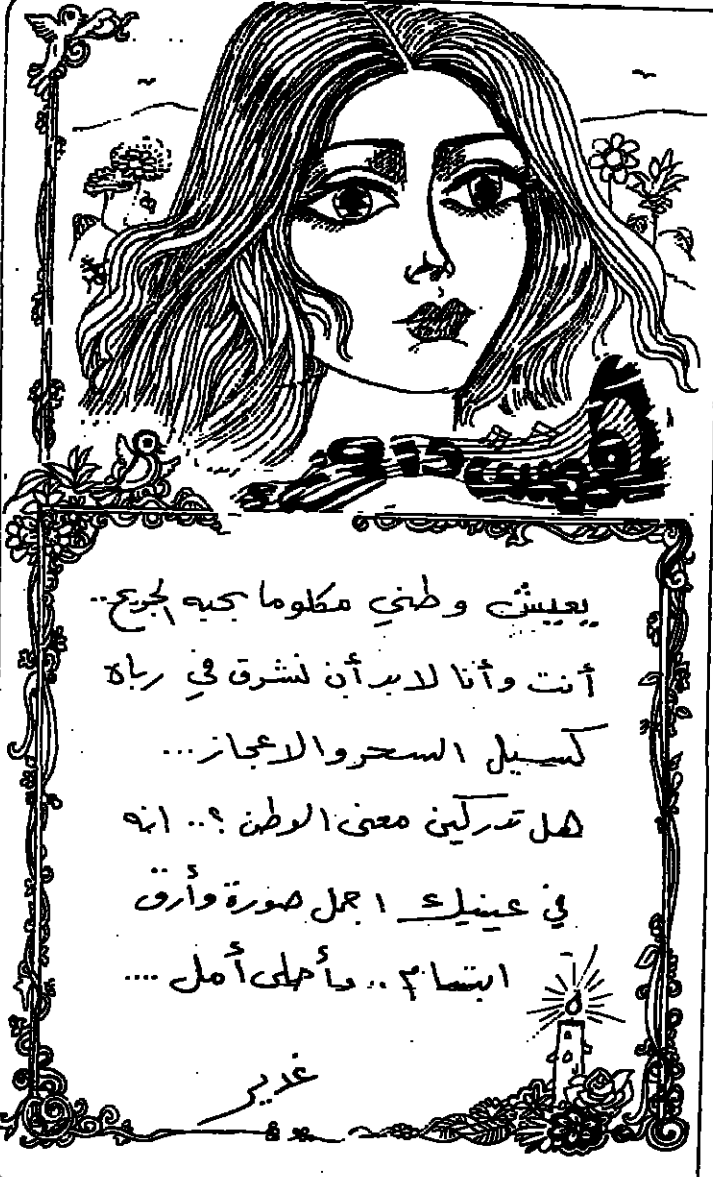 يعيش وطني مكلوما بحبه الجريح..
أنت وأنا لابد أن نشرق في رباه
كسيل السحر والاعجاز...
هل تدركين معنى الوطن ؟.. انه
في عينيك اجمل صورة وأرق
ابتسام .. وأحلى أمل ....
غدير